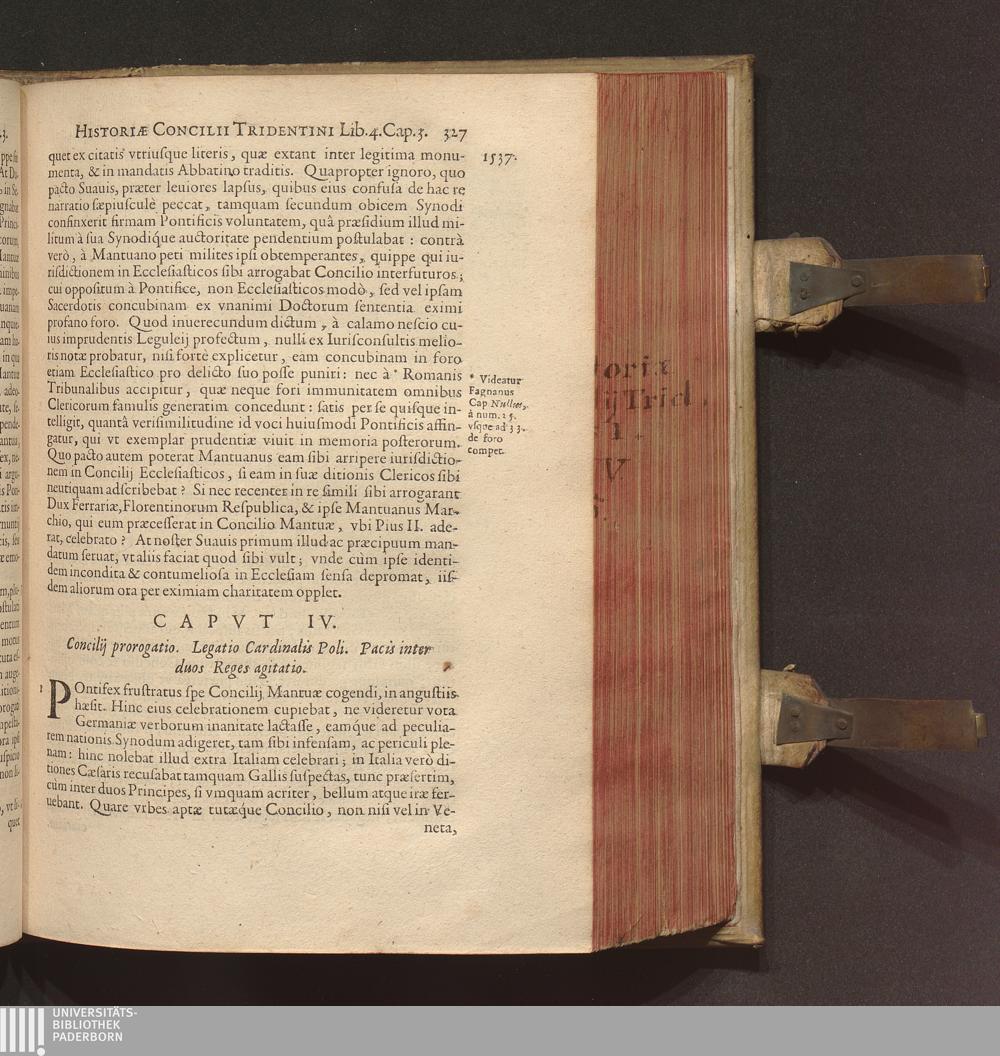 HISTORIÆ CONCILII TRIDENTINI Lib. 4. Cap. 3. 327
1537.
quet ex citatis vtriusque literis, quæ extant inter legitima monu-
menta, & in mandatis Abbatino traditis. Quapropter ignoro, quo
pacto Suauis, præter leuiores lapsus, quibus eius confusa de hac re
narratio sæpiusculè peccat, tamquam secundum obicem Synodi
confinxerit firmam Pontificis voluntatem, quâ præsidium illud mi-
litum à sua Synodíque auctoritate pendentium postulabat : contrà
verò, à Mantuano peti milites ipsi obtemperantes, quippe qui iu-
risdictionem in Ecclesiasticos sibi arrogabat Concilio interfuturos;
cui oppositum à Pontifice, non Ecclesiasticos modò, sed vel ipsam
Sacerdotis concubinam ex vnanimi Doctorum sententia eximi
profano foro. Quod inuerecundum dictum, à calamo nescio cu-
ius imprudentis Leguleij profectum, nulli ex Iurisconsultis melio-
ris notæ probatur, nisi fortè explicetur, eam concubinam in foro
etiam Ecclesiastico pro delicto suo posse puniri: nec à * Romanis
Tribunalibus accipitur, quæ neque fori immunitatem omnibus
Clericorum famulis generatim concedunt: satis per se quisque in-
telligit, quantâ verisimilitudine id voci huiusmodi Pontificis affin-
gatur, qui vt exemplar prudentiæ viuit in memoria posterorum.
Quo pacto autem poterat Mantuanus eam sibi arripere iurisdictio-
nem in Concilij Ecclesiasticos, si eam in suæ ditionis Clericos sibi
neutiquam adscribebat ? Si nec recenter in re simili sibi arrogarant
Dux Ferrariæ, Florentinorum Respublica, & ipse Mantuanus Mar-
chio, qui eum præcesserat in Concilio Mantuæ, vbi Pius II. ade-
rat, celebrato ? At noster Suauis primum illud ac præcipuum man-
datum seruat, vt aliis faciat quod sibi vult; vnde cùm ipse identi-
dem incondita & contumeliosa in Ecclesiam sensa depromat, iis-
dem aliorum ora per eximiam charitatem opplet.
* Videatur
Fagnanus
Cap Nullus,
à num. 15.
vsque ad 33.
de foro
compet.
CAPVT IV.
Concilij prorogatio. Legatio Cardinalis Poli. Pacis inter
duos Reges agitatio.
1 POntifex frustratus spe Concilij Mantuæ cogendi, in angustiis
hæsit. Hinc eius celebrationem cupiebat, ne videretur vota
Germaniæ verborum inanitate lactasse, eamque ad peculia-
rem nationis Synodum adigeret, tam sibi infensam, ac periculi ple-
nam: hinc nolebat illud extra Italiam celebrari; in Italia verò di-
tiones Cæsaris recusabat tamquam Gallis suspectas, tunc præsertim,
cùm inter duos Principes, si vmquam acriter, bellum atque iræ fer-
uebant. Quare vrbes aptæ tutæque Concilio, non nisi vel in Ve-
neta,
quet
UNIVERSITÄTS-
BIBLIOTHEK
PADERBORN